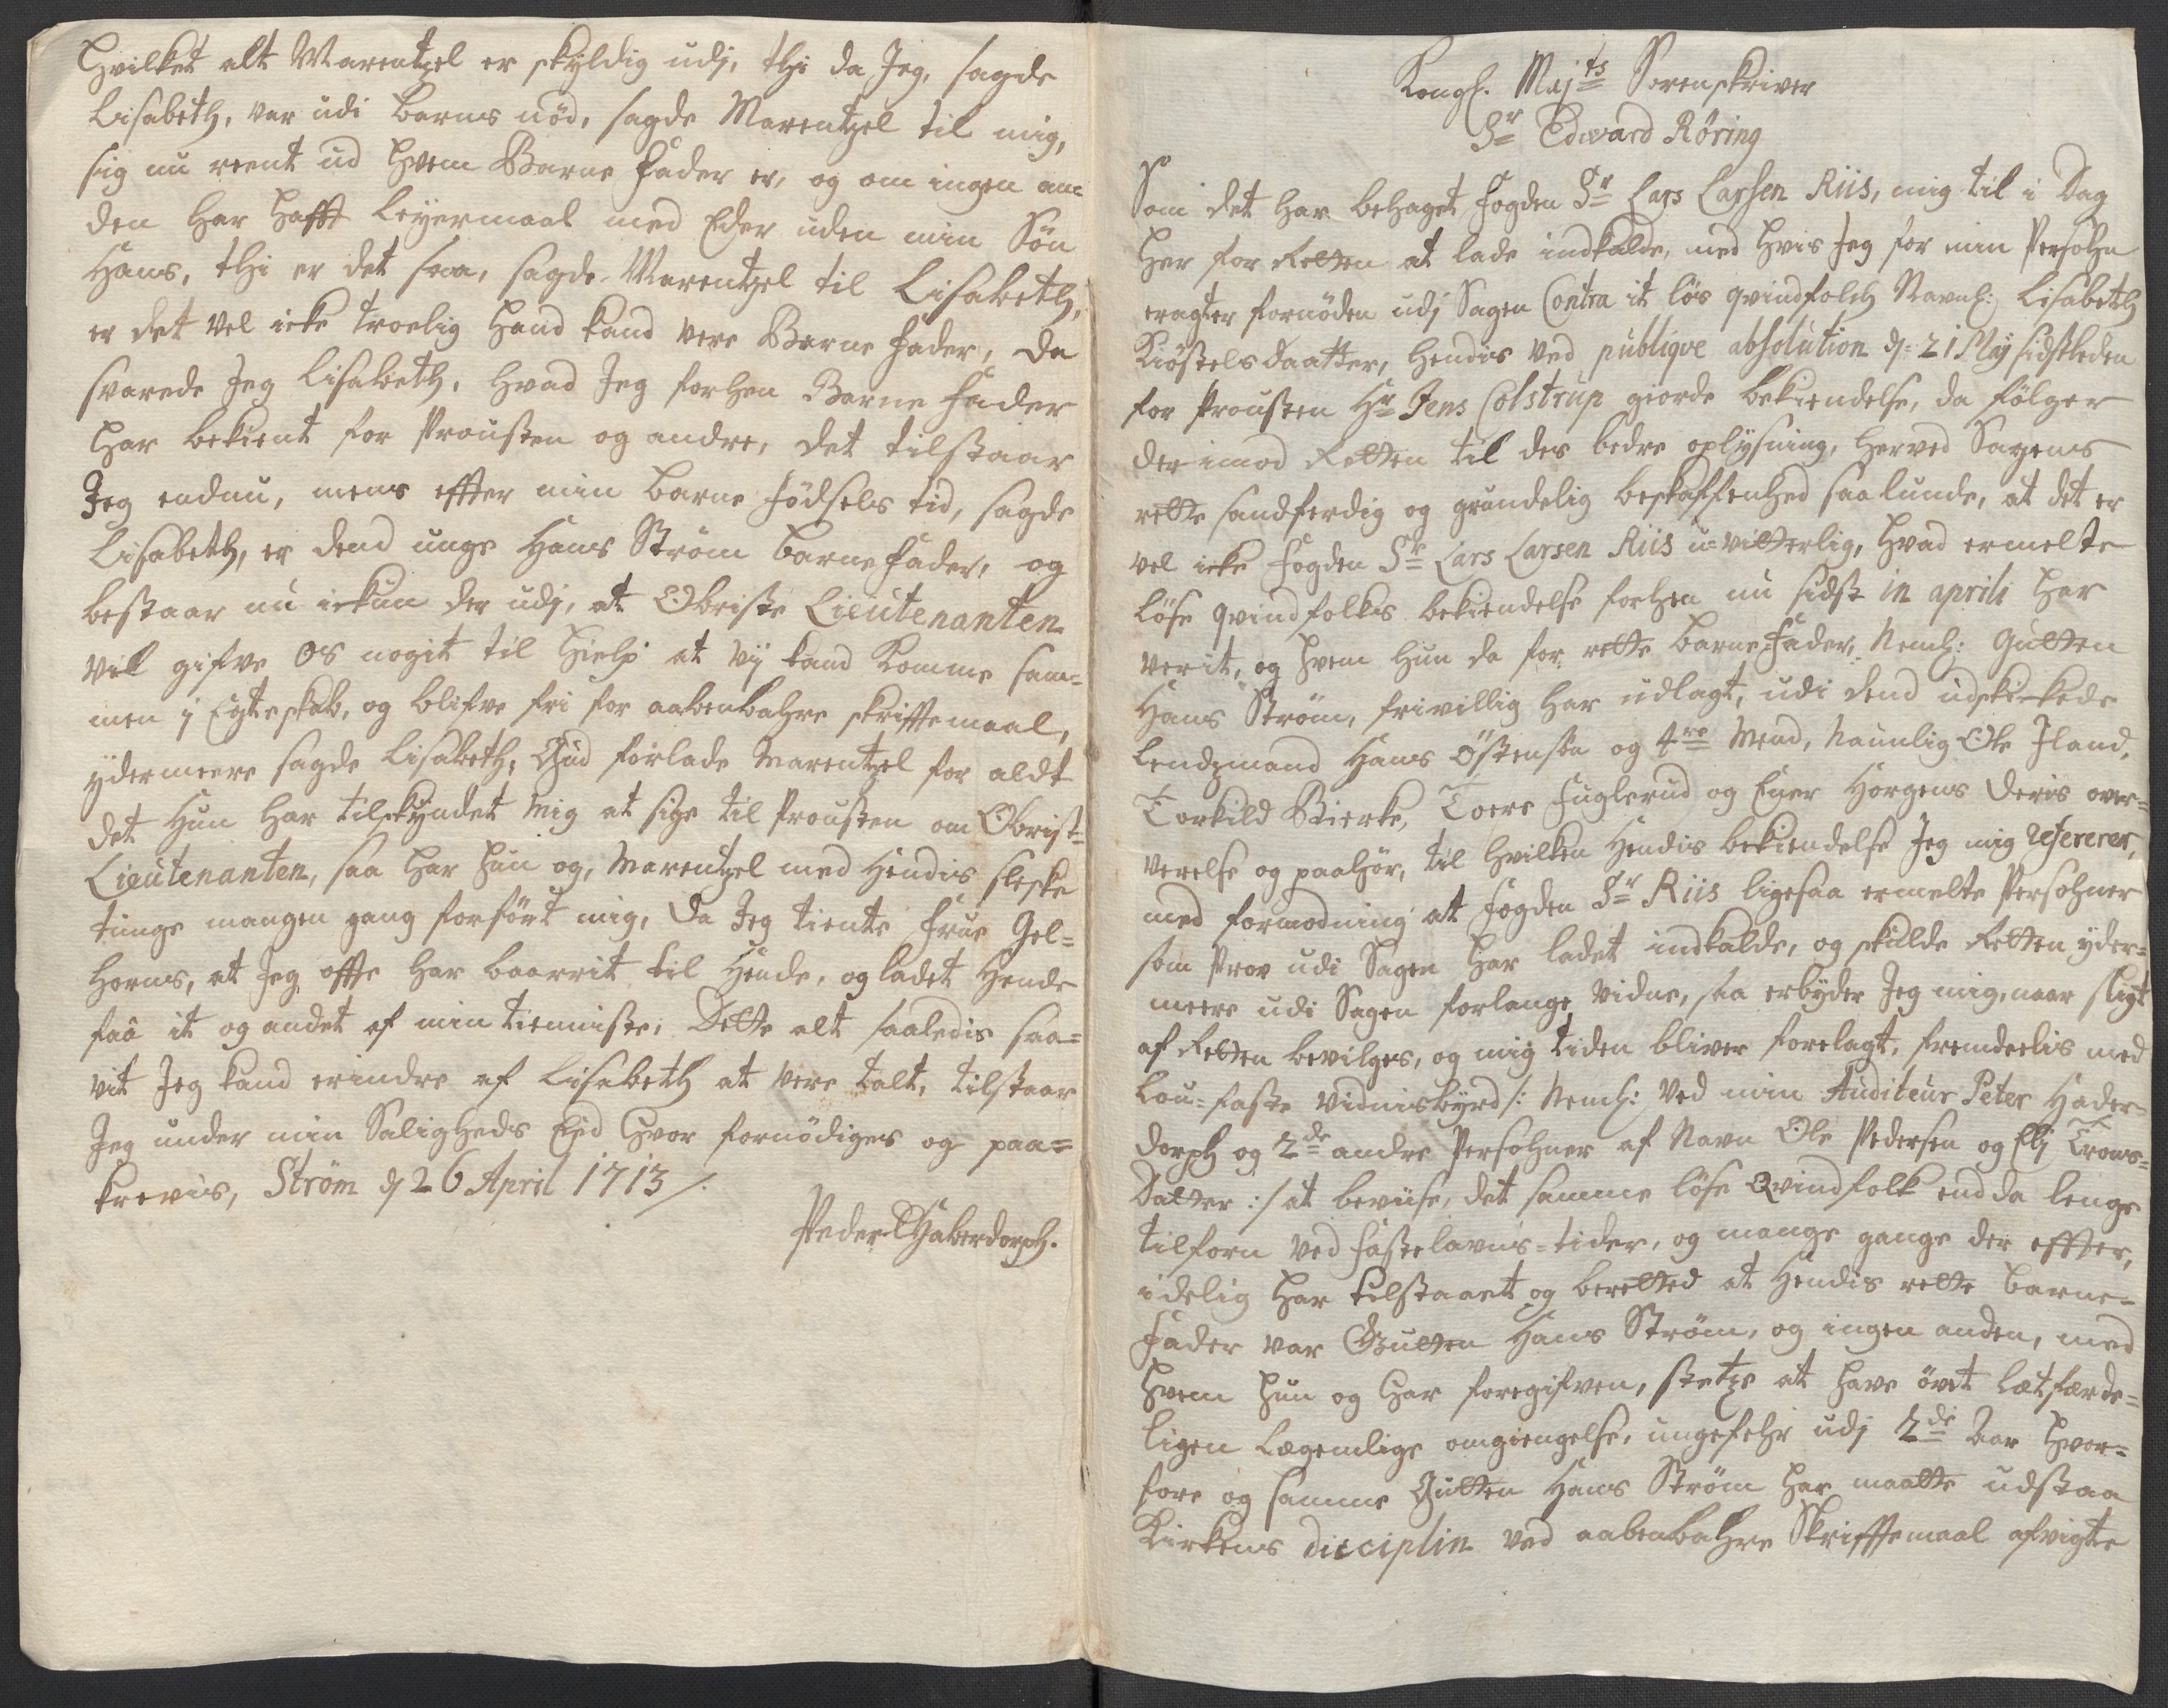 Hvilket alt Marentzel er skyldig udj, thi da Jeg, sagde
Lisabeth, var udi barns nöd, sagde Marentzel til mig,
sig nu reent ud hvem Barne fader er, og om ingen an-
den har hafft leyermaal med Eder uden min Sön
Hans, thi er det saa, sagde Marentzel til Lisabeth,
er det vel icke troelig hand kand vere Barne fader, da
svarede Jeg Lisabeth, hvad Jeg forhen Barne fader
har bekient for Prousten og andre, det tilstaar
Jeg endnu, mens effter min barns födsels tid, sagde
Lisabeth, er dend unge Hans Ström barnefader, og
bestaar nu ickun der udj, at Obriste Lieutenanten
vil gifve os nogit til hielp at vÿ kand komme sam=
men j Egteskab, og blifve fri for aabenbahre skrifftemaal,
ÿdermeere sagde Lisabeth, Gud forlade Marentzel for aldt
det Hun har tilskÿndet mig at sige til Prousten om Obrist=
Lieutenanten, saa har hun og, Marentzel med hendis sleske
tunge mangen gang forfört mig, da Jeg tiente frue Gel=
horns, at Jeg offte har baarrit til Hende, og ladet Hende
faa it og andet af min tienniste; Dette alt saaledis saa=
vit Jeg kand erindre af Lisabeth at vere talt, tilstaar
Jeg under min Saligheds Eed hvor fornödiges og paa=
krevis, Ström d 26 April 1713 /.
Peder Haderdorph.
Kongl. Majts Sorenskriver
Sr Edward Röring
Som det har behaget fogden Sr Lars Larsen Riis, mig til i Dag
her for Retten at lade indkalde, med hvis Jeg for min Persohn
eragter fornöden udj Sagen Contra it lös qvindfolch Navnl: Lisabeth
Kiöstelsdaatter, hendis ved publiqve absolution d: 21 Maj sidstleden
for Prousten Hr Jens Colstrup giorde bekiendelse, da fölger
derimod Retten til des bedre oplÿsning, herved Sagens
rette sandferdig og grundelig beskaffenhed saalunde, at det er
vel icke fogden Sr Lars Larsen Riis u=vitterlig, hvad ermelte
löse qvindfolks bekiendelse forhen nu sidst in aprili har
verit, og hvem hun da for rette barne=fader, Neml: Gutten
Hans Ström, frivillig har udlagt, udi dend udskickede
Lendzmand Hans Östensön og 4re Mend, Naunlig Ole Jland,
Torkild Bierke, Toere fuglerud og Engr Horgens deris over=
verelse og paahör, til hvilken Hendis bekiendelse Jeg mig refererer,
med formodning at fogden Sr Riis ligesaa ermelte Persohner
som Prov udi Sagen har ladet indkalde, og skulde Retten ÿder=
meere udi Sagen forlange Vidne, saa erbÿder Jeg mig, naar sligt
af Retten bevilges, og mig tiden bliver forelagt, fremdeelis med
Lou=faste vidnisbÿrd /: Neml: ved min Auditeur Peter Hader=
dorph og 2de andre Persohner af Navn Ole Pedersen og Elj Trons=
datter :/ at beviise, det samme löse Qvindfolk endda lenge
tilforn ved fastelavns=tider, og mange gange der effter,
idelig har tilstaaet og beretted at Hendis rette barne=
fader var Gutten Hans Ström, og ingen anden, med
hvem hun og har foregifven, stetze at have övet letfærde=
ligen Legemlige omgiengelse, ungefehr udj 2de Aar hvor=
fore og samme Gutten Hans Ström har maatte udstaa
Kirkens disciplin ved aabenbahre Skrifftemaal afvigte